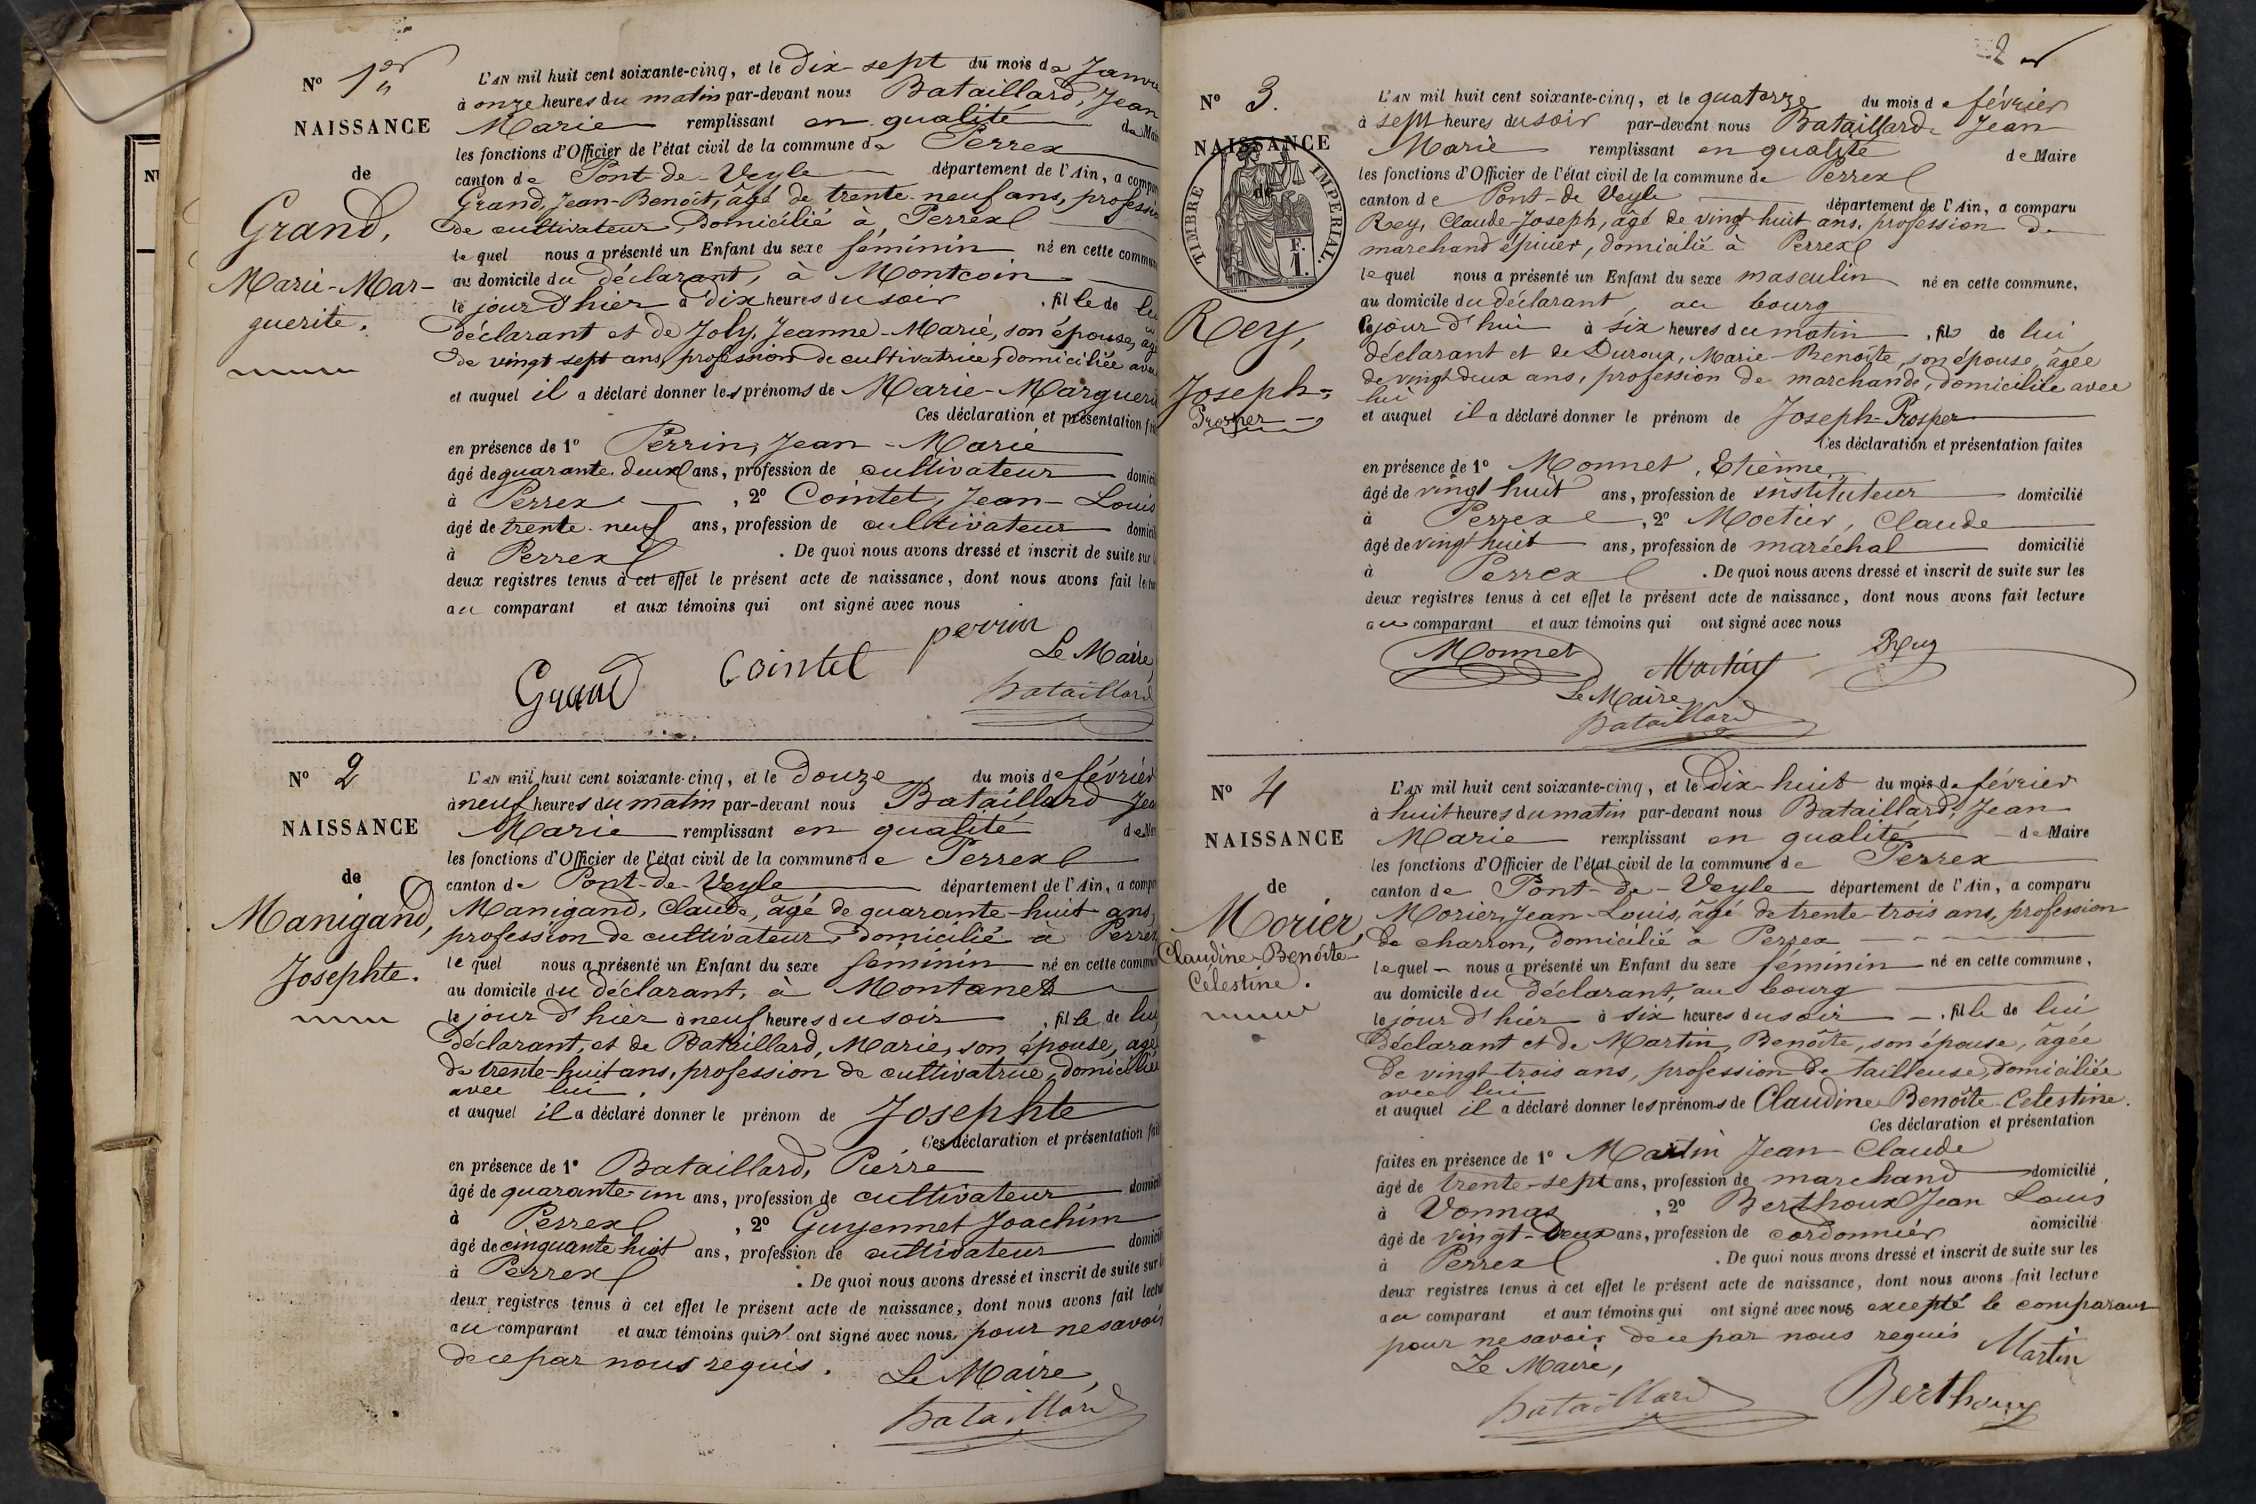 No 1er
NAISSANCE
de
Grand,
Marie-Mar-
guerite.
L'AN mil huit cent soixante-cinq, et le dix-sept du mois de Janv
à onze heures du matin par-devant nous Bataillard, Jean
Marie remplissant en qualité de Mai
les fonctions d'Officier de l'état civil de la commune de Perrex
canton de Pont-de-Veyle département de l'Ain, a compa
Grand, Jean-Benoît, âgé de trente-neuf ans, professio
de cultivateur, domicilié à Perrex
lequel nous a présenté un Enfant du sexe féminin né en cette commun
au domicile du déclarant, à Montcoin
le jour d'hier à dix heures du soir, fille de lui
déclarant et de Joly, Jeanne-Marie, son épouse, âgé
de vingt sept ans, profession de cultivatrice, domiciliée avec
et auquel il a déclaré donner les prénoms de Marie-Margueri
Ces déclaration et présentation
en présence de 1º Perrin, Jean-Marie
âgé de quarante deux ans, profession de cultivateur domici
à Perrex, 2º Cointet, Jean-Louis
âgé de trente-neuf ans, profession de cultivateur domici
à Perrex. De quoi nous avons dressé et inscrit de suite sur
deux registres tenus à cet effet le présent acte de naissance, dont nous avons fait lectu
au comparant et aux témoins qui ont signé avec nous
perrin
Grand Cointet Le Maire,
Bataillard
No 2
NAISSANCE
de
Manigand,
Josephte.
L'AN mil huit cent soixante-cinq, et le douze du mois de février
à neuf heures du matin par-devant nous Bataillard Jea
Marie remplissant en qualité de
les fonctions d'Officier de l'état civil de la commune de Perrex
canton de Pont-de-Veyle département de l'Ain, a compa
Manigand, Claude, âgé de quarante-huit ans,
profession de cultivateur, domicilié à Perrex
lequel nous a présenté un Enfant du sexe féminin né en cette commun
au domicile du déclarant, à Montanet
le jour d'hier à neuf heures du soir, fille de lui
déclarant, et de Bataillard, Marie, son épouse, âgé
de trente-huit ans, profession de cultivatrice, domiciliée
avec lui.
et auquel il a déclaré donner le prénom de Josephte
Ces déclaration et présentation fai
en présence de 1º Bataillard, Pierre
âgé de quarante-un ans, profession de cultivateur domici
à Perrex, 2º Guyennet Joachim
âgé de cinquante huit ans, profession de cultivateur domici
à Perrex. De quoi nous avons dressé et inscrit de suite sur
deux registres tenus à cet effet le présent acte de naissance, dont nous avons fait lectu
au comparant et aux témoins qui n'ont signé avec nous, pour ne savoir
de ce par nous requis. Le Maire,
Bataillard
2
No 3.
NAISSANCE
de
TIMBRE IMPERIAL.
F.
1.
Rey,
Joseph-
Prosper
L'AN mil huit cent soixante-cinq, et le quatorze du mois de février
à sept heures du soir par-devant nous Bataillard, Jean
Marie remplissant en qualité de Maire
les fonctions d'Officier de l'état civil de la commune de Perrex
canton de Pont-de Veyle département de l'Ain, a comparu
Rey, Claude-Joseph, âgé de vingt huit ans, profession de
marchand épicier, domicilié à Perrex
lequel nous a présenté un Enfant du sexe masculin né en cette commune,
au domicile du déclarant, au bourg
le jour d'hui à six heures du matin, fils de lui
déclarant et de Duroux, Marie-Benoîte, son épouse, âgée
de vingt deux ans, profession de marchande, domiciliée avec
lui
et auquel il a déclaré donner le prénom de Joseph-Prosper
Ces déclaration et présentation faites
en présence de 1º Monnet, Etienne,
âgé de vingt huit ans, profession de instituteur domicilié
à Perrex, 2º Moetier, Claude
âgé de vingt huit ans, profession de maréchal domicilié
à Perrex. De quoi nous avons dressé et inscrit de suite sur les
deux registres tenus à cet effet le présent acte de naissance, dont nous avons fait lecture
au comparant et aux témoins qui ont signé avec nous
Monnet Rey
Le Maire
Bataillard
No 4
NAISSANCE
de
Morier,
Claudine-Benoîte-
Célestine.
L'AN mil huit cent soixante-cinq, et le dix-huit du mois de février
à huit heures du matin par-devant nous Bataillard, Jean
Marie remplissant en qualité de Maire
les fonctions d'Officier de l'état civil de la commune de Perrex
canton de Pont-de-Veyle département de l'Ain, a comparu
Morier, Jean-Louis, âgé de trente-trois ans, profession
de charron, domicilié à Perrex
lequel nous a présenté un Enfant du sexe féminin né en cette commune,
au domicile du déclarant, au bourg
le jour d'hier à six heures du soir, fille de lui
déclarant et de Martin, Benoîte, son épouse, âgée
de vingt-trois ans, profession de tailleuse, domiciliée
avec lui
et auquel il a déclaré donner les prénoms de Claudine-Benoîte-Célestine.
Ces déclaration et présentation
faites en présence de 1º Martin Jean-Claude
âgé de trente-sept ans, profession de marchand domicilié
à Vonnas, 2º Berthoux Jean Louis
âgé de vingt-deux ans, profession de cordonnier domicilié
à Perrex. De quoi nous avons dressé et inscrit de suite sur les
deux registres tenus à cet effet le présent acte de naissance, dont nous avons fait lecture
au comparant et aux témoins qui ont signé avec nous excepté le comparant
pour ne savoir de ce par nous requis Martin
Le Maire,
Bataillard Berthoux